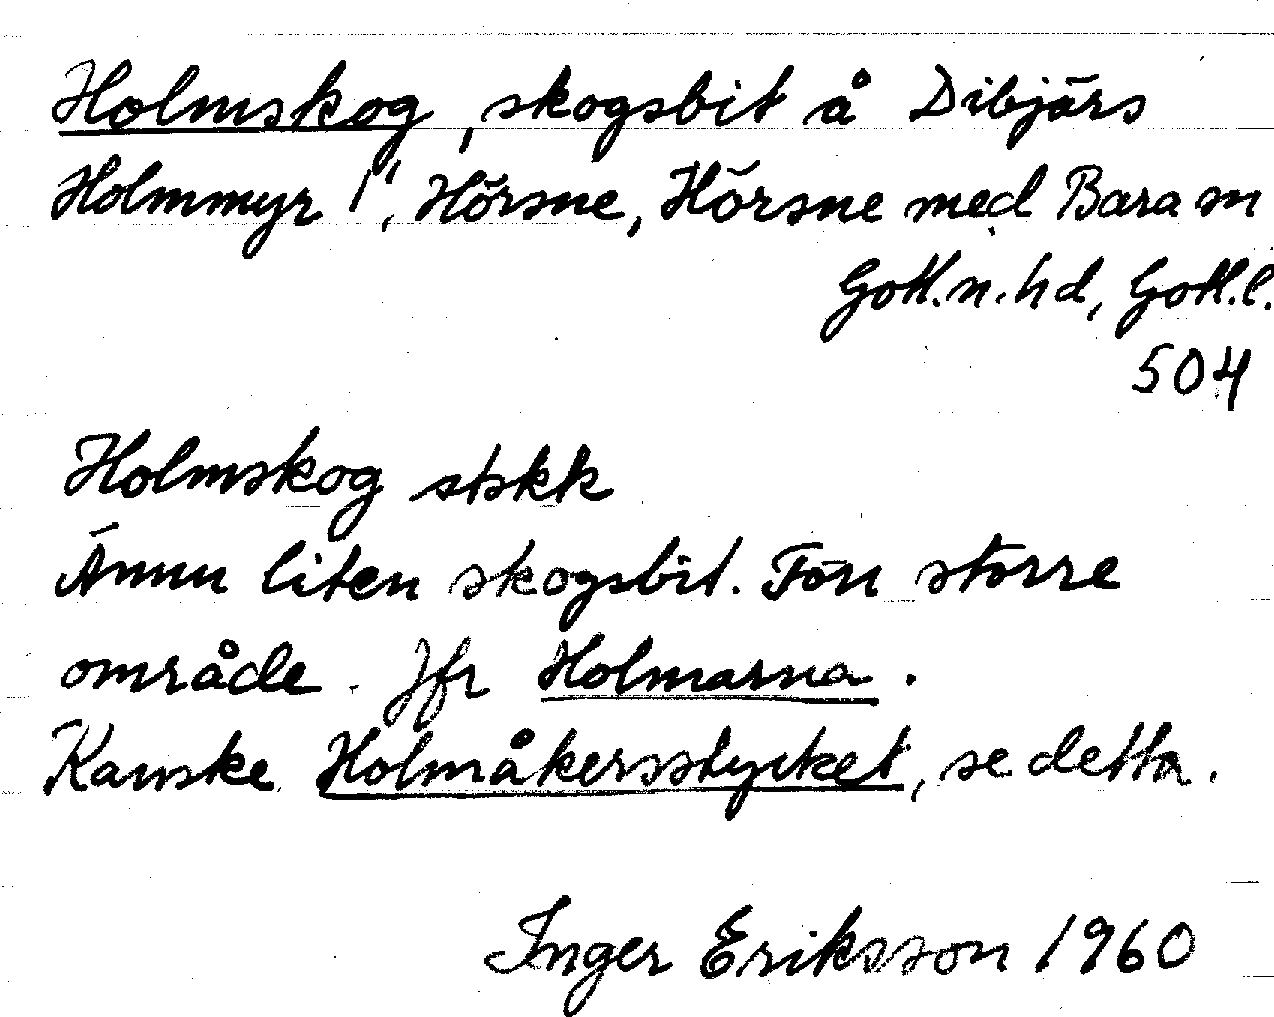 Holmskog, skogsbit å Dibjärs
Holmmyr 1", Hörsne, Hörsne med Bara sn
Gotl.n.hd, Gotl.l.
504
Holmskog stskk
Ännu liten skogsbit. Förr större
område. Jfr Holmarna.
Kanske Holmåkersstycket, se detta.
Inger Eriksson 1960